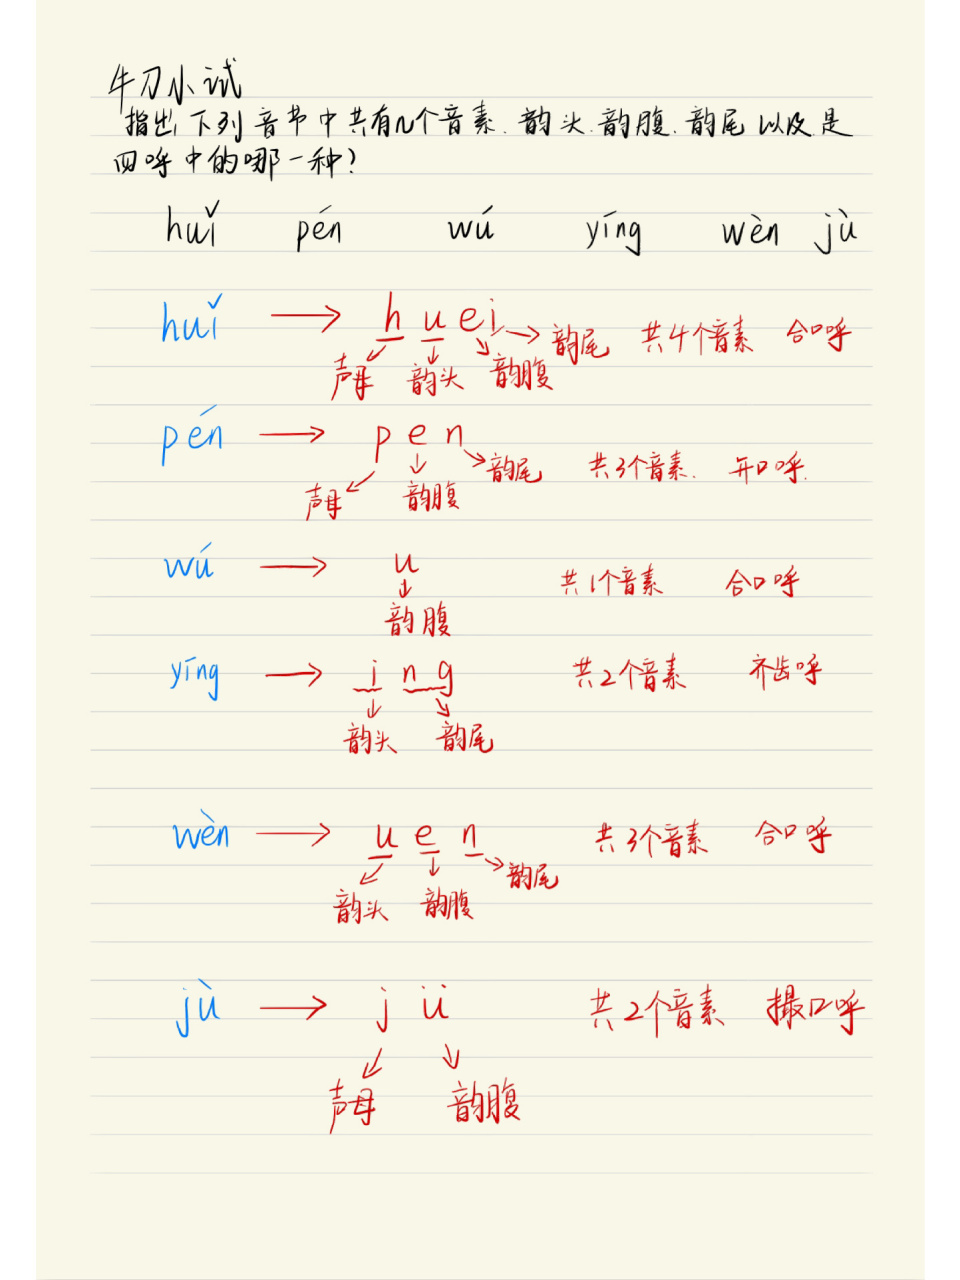 牛刀小试
指出下列音节中共有几个音素、韵头、韵腹、韵尾以及是
四呼中的哪一种?
huǐ pén wú yīng wèn jù
huǐ → h u e i → 韵尾 共4个音素 合口呼
声母 韵头 韵腹
pén → p e n 韵尾 共3个音素 开口呼
声母 韵腹
wú → u 共1个音素 合口呼
韵腹
yīng → i n g 共2个音素 齐齿呼
韵头 韵尾
wèn → u e n 共3个音素 合口呼
韵头 韵腹 韵尾
jù → j ü 共2个音素 撮口呼
声母 韵腹